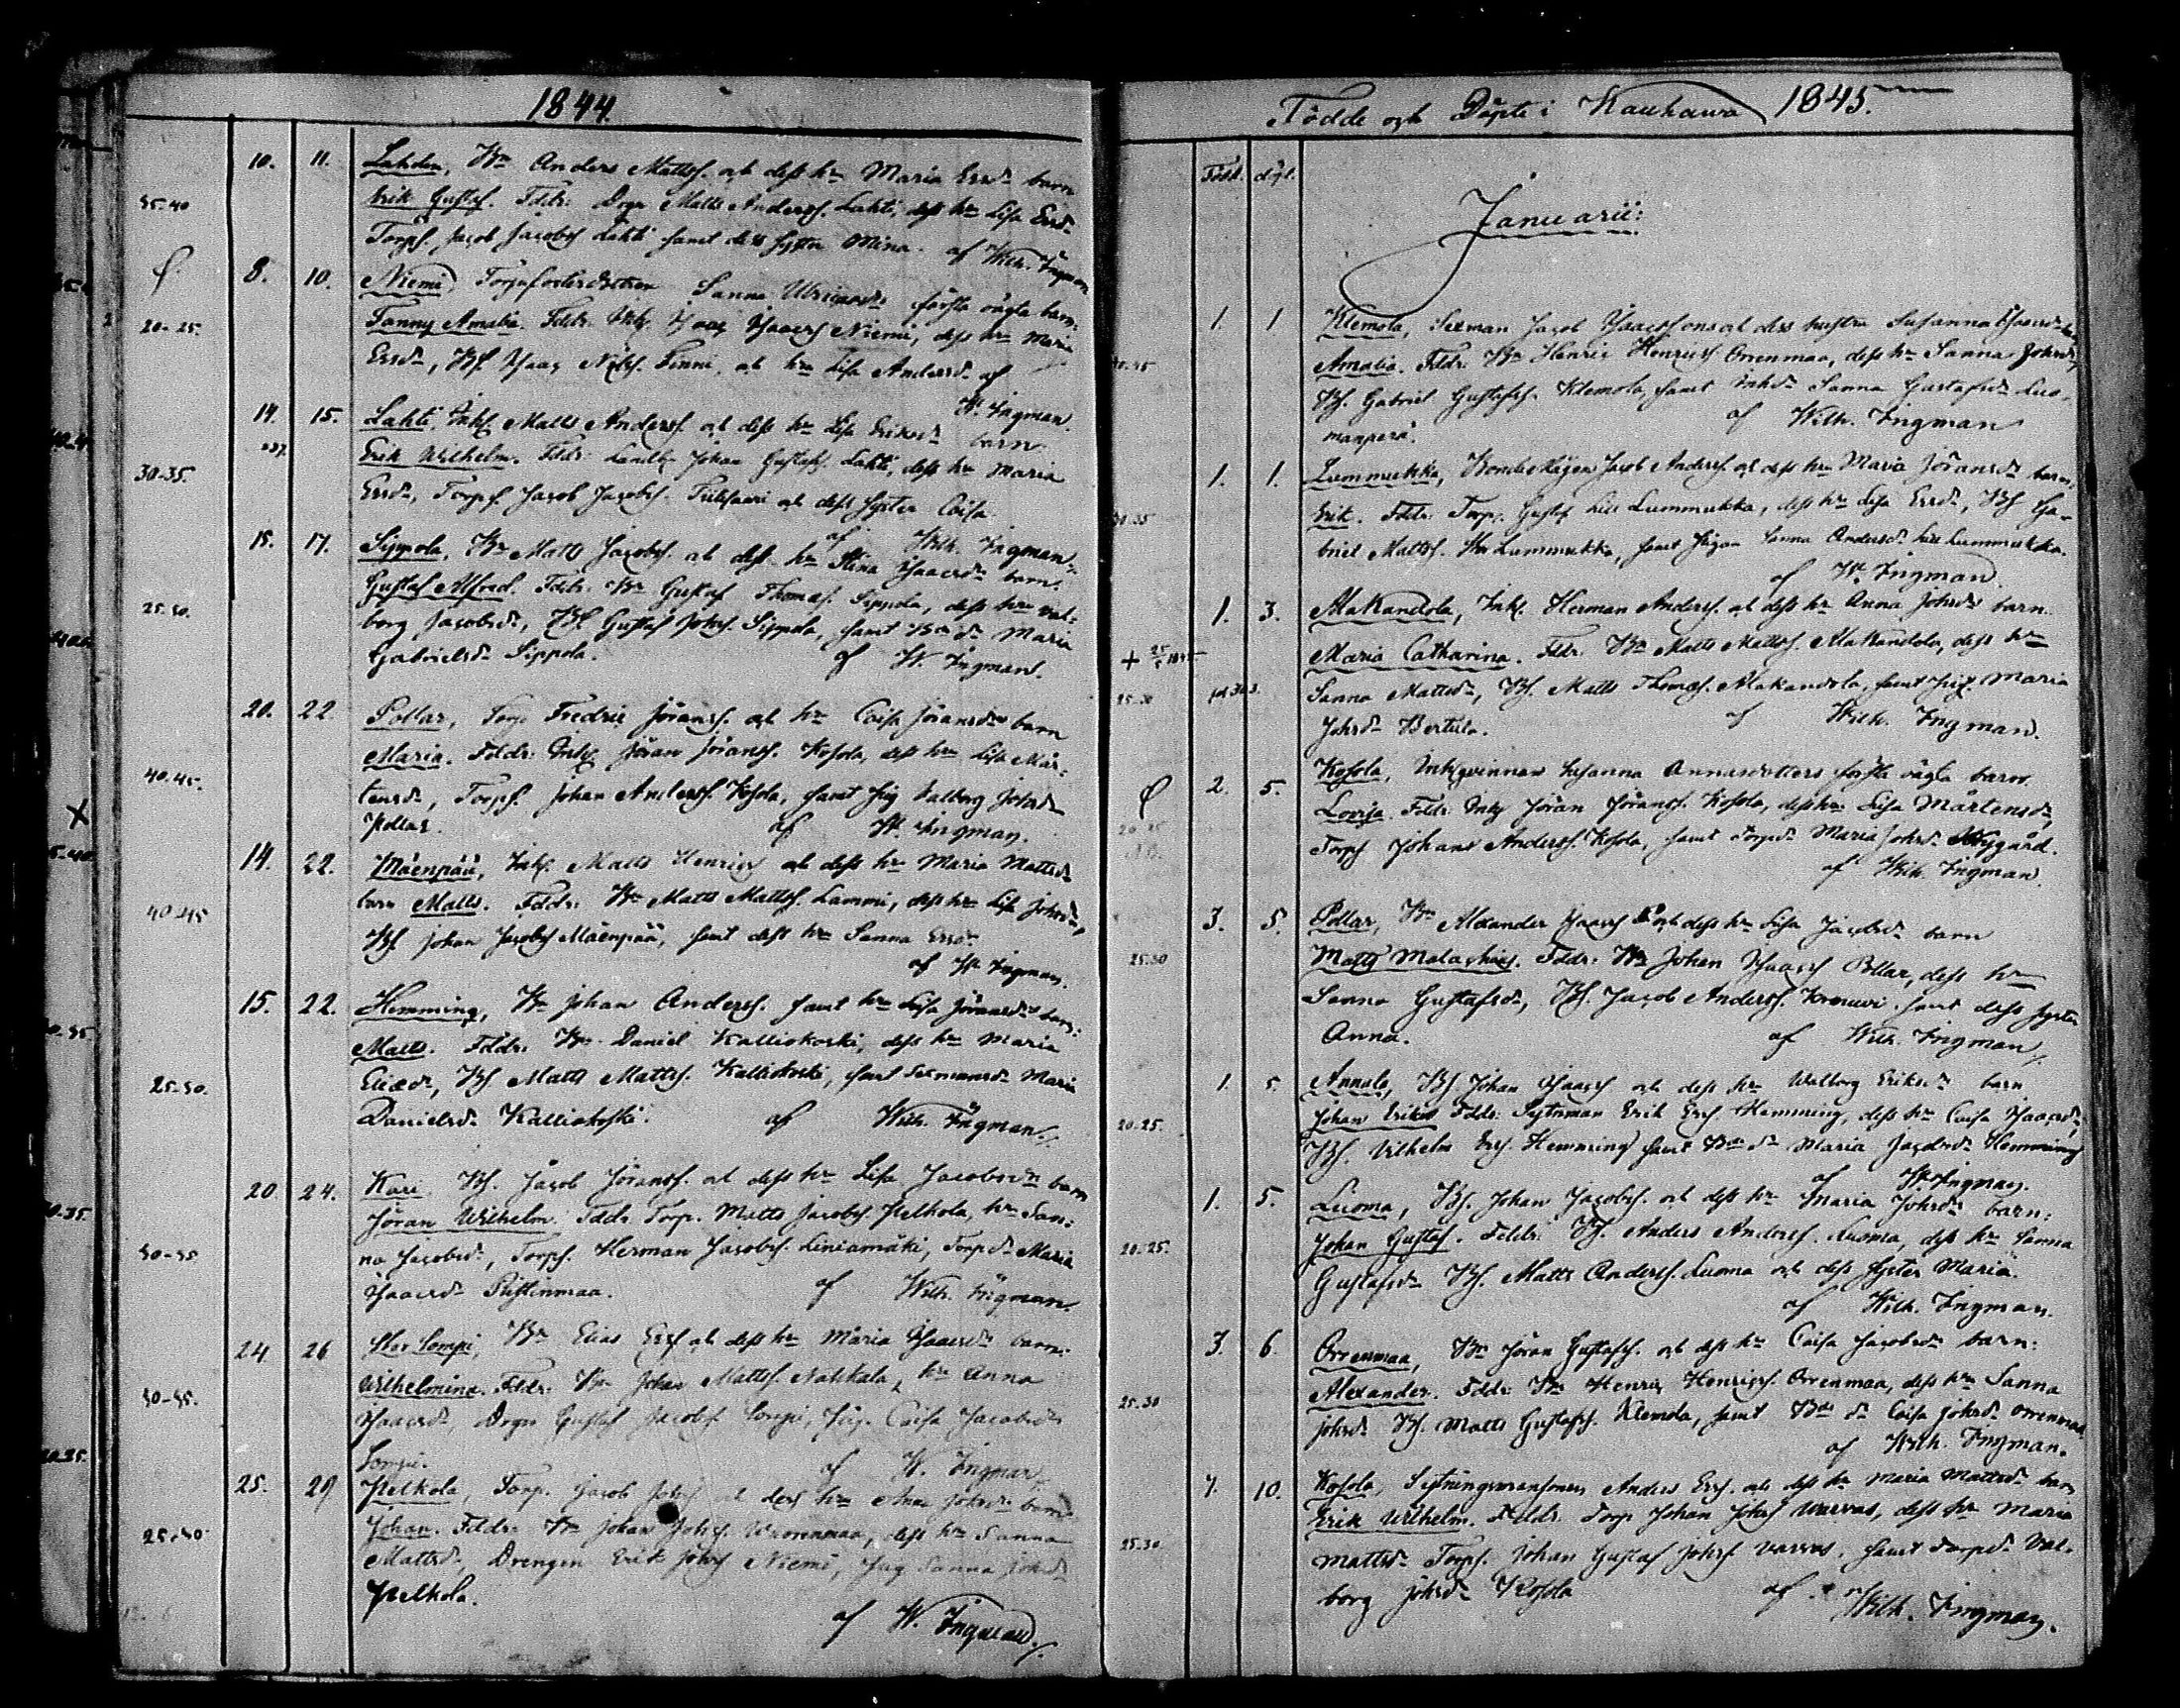 1844.
10. 11. Lahdu, Bn Anders Mattss. och dess hu Maria Ersdr barn
35-40 Erik Gustaf. Fddr: Drgn Matts Anderss. Lahti, dess hu Lisa Ersdr
Torps. Jacob Jacobss Lahti samt dess syster Mina. af Wilh. Ingman
8. 10. Niemi, Sanna Ulricasdr första oägta barn:
20-25. Fanny Amalia. Fddr. Inh. Isaac Isaacss Niemi, dess hu Maria
Ersdr, Bs. Isaac Nilss. Finni, och hu Lisa Andersdr af
W. Ingman.
14. 15. Lahti, Inhs. Matts Anderss. och dess hu Lisa Eriksdr barn
30-35. Erik Wilhelm. Fddr: Johan Gustafss. Lahti, dess hu Maria
Ersdr, Torps. Jacob Jacobss. och dess syster Caisa
af Wilh. Ingman
15. 17. Sippola, Bn Matts Jacobss. och dess hu Stina Isaacsdr barn:
25.30. Gustaf Alfred. Fddr: Bn Gustaf Thomass. Sippola, dess hu Val-
borg Jacobsdr, Bs. Gustaf Johss. Sippola, samt Bdr Maria
Gabrielsdr Sippola. af W. Ingman.
20. 22 Pollar, Torp. Fredric Jöranss. och hu Caisa Jöransdr barn
Maria. Fddr: Inhs. Jöran Jöranss. Kosola, dess hu Lisa Mår-
40.45. tensdr, Torps. Johan Anderss. Kosola, samt pig Valborg Johsdr
Pollar. af W. Ingman.
14. 22. Mäenpää, Inhs. Matts Henrics och dess hu Maria Mattsdr
40-45 barn Matts. Fddr: Bn Matts Mattss. Lammi, dess hu Lisa Johsdr,
Bs Johan Jacobss Mäenpää, samt dess hu Sanna Ersdr
af W. Ingman.
15. 22. Hemming, Bn Johan Anderss. samt hu Lisa Jöransdr barn:
Matts. Fddr: Bn Daniel Kalliokoski, dess hu Maria
25-30. Eliædr, Bs Matts Mattss. Kalliokoski, samt Sexmansdr Maria
Danielsdr Kalliokoski. af Wilh. Ingman.
20 24. Kari. Bs. Jacob Jöranss. och dess hu Lisa Jacobsdr barn
Jöran Wilhelm. Fddr. Torp. Matts Jacobss. Pelkola, hu San-
30-35 na Jacobsdr, Torps. Herman Jacobss. Liniamäki, Torpdr Maria
Isaacsdr Pistinmaa. af Wilh. Ingman.
24 26 Stor Sompi, Bn Elias Ersss och dess hu Maria Isaacsdr barn:
30-35. Wilhelmina. Fddr: Bn Johan Mattss. Nahkala, hu Anna
Isaacsdr, Drgn Gustaf Jacobss. Sompi, pig. Caisa Jacobsdr
Sompi. af W. Ingman
25. 29 Pelkola, Torp. Jacob Johss och dess hu Anna Johsdr barn
25-30 Johan. Fddr: Bn Johan Johss. Wuorenmaa, dess hu Sanna
Mattsdr, Drengen Erik Johss Niemi, pig Sanna Johsdr
Pelkola.
af W. Ingman.
Födde och Döpte i Kauhawa 1845.
Född. döpt.
Januarii:
1. 1 Klemola, Sexman Jacob Isaacsson och dess hustru Susanna Isaacsdr
Amalia. Fddr: Bn Henric Henricss. Orrenmaa, dess hu Sanna Johsdr,
Bs. Gabriel Gustafss. Klemola, samt Inhdr Sanna Gustafsdr Luo-
manperä. af Wilh. Ingman
1. 1. Lummukka, Jacob Anderss. och dess hu Maria Jöransdr barn,
Erik. Fddr: Torp. Gustaf Lill Lummukka, dess hu Lisa Ersdr, Bs Ga-
briel Mattss. Stor Lummukka, samt pigan Sanna Andersdr Lill Lummukka.
af W. Ingman.
1. 3. Makandola, Inhs. Herman Anderss. och dess hu Anna Johsdr barn
+ 25/5 1845 Maria Catharina. Fddr. Bn Matts Mattss. Makandola, dess hu
25.30 Sanna Mattsdr, Bs. Matts Thomass. Makandola, samt pig. Maria
Johsdr Bertula. af Wilh. Ingman.
2. 5. Kosola, Inhqvinnan Susanna Annasdotters första oägta barn.
20.25 Lovisa. Fddr: Inhs Jöran Jöranss. Kosola, dess hu Lisa Mårtensdr,
Torps Johans Anderss. Kosola, samt Torpdr Maria Johsdr Nygård.
af Wilh. Ingman
3. 5. Pollar, Bn Alexander Isaacss och dess hu Lisa Jacobsdr barn
25.30 Matts Malachias. Fddr: Bn Johan Isaacss Pollar, dess hu
Sanna Gustafsdr, Bs. Jacob Anderss. samt dess syster
Anna. af Wilh. Ingman
1. 5 Annala, Bs Johan Isaacss och dess hu Walborg Eriksdr barn
20.25. Johan Erik. Fddr: Sytnman Erik Ersss Hemming, dess hu Caisa Isaacsdr,
Bs. Vilhelm Ersss. Hemming samt Bdr Maria Jacobsdr Hemming
af W. Ingman.
1. 5. Luoma, Bs. Johan Jacobss. och dess hu Maria Johsdr barn:
20.25. Johan Gustaf. Fddr: Bs. Anders Anderss. Luoma, dess hu Sanna
Gustafsdr Bs. Matts Anderss. Luoma och dess syster Maria.
af Wilh. Ingman.
3. 6. Orrenmaa, Bn Jöran Gustafss. och dess hu Caisa Jacobsdr barn:
25.30 Alexander. Fddr: Bn Henric Henricss. Orrenmaa, dess hu Sanna
Johsdr Bs. Matts Gustafss. Klemola, samt Bdr Caisa Johsdr Orrenmaa
af Wilh. Ingman.
7. 10. Kosola, Sytningsmanssonen Anders Ersss. och dess hu Maria Mattsdr barn
Erik Wilhelm. Fddr: Torp Johan Johss Warvas, dess hu Maria
25.30 Mattsdr Torps. Johan Gustaf Johss Varvas, samt Torpdr Val-
borg Johsdr Kosola af Wilh. Ingman.